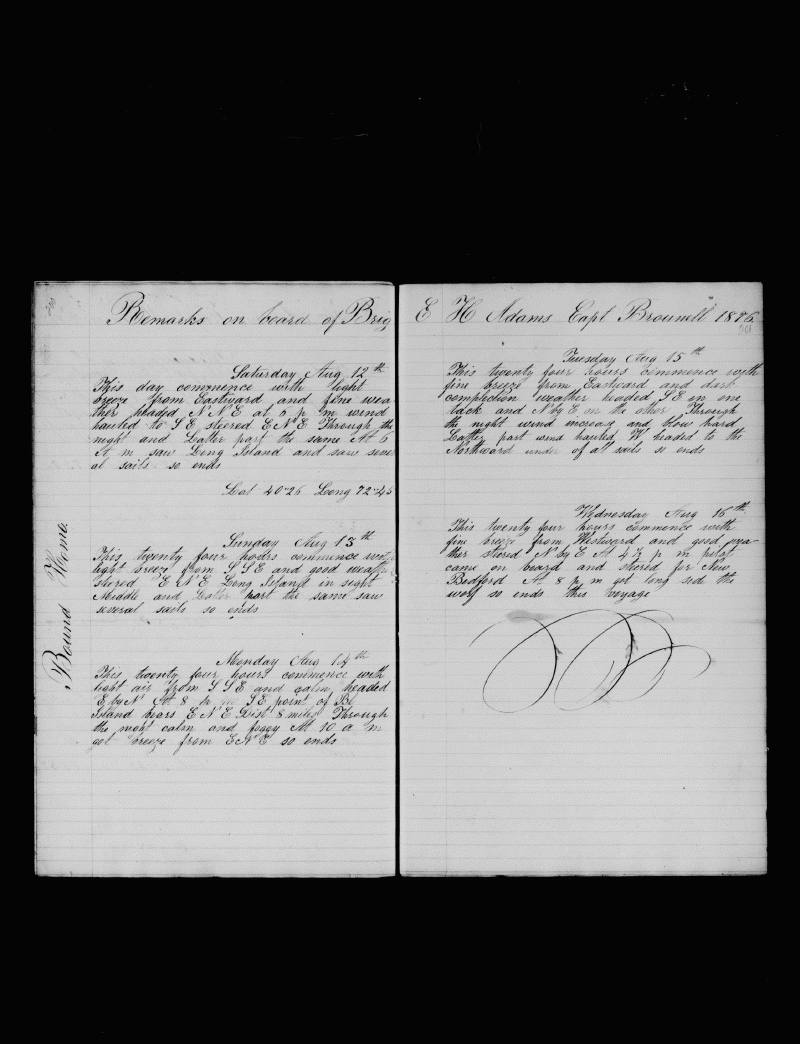 260
Remarks on board of Brig
Saturday Aug 12th
This day commence with light
breeze from Eastward and fine wea
ther headed N N E at 5 p m wind
hauled to S E steered E N E Through the
night and Latter part the same At 6
A m saw Long Island and saw sever
al sails so ends
Lat 40"26 Long 72"45
Sunday Aug 13th
This twenty four hours commence with
light breeze from S S E and good weath
stered E N E Long Island in sight
Middle and Latter part the same saw
several sails so ends
Monday Aug 14th
This twenty four hours commence with
light air from S S E and calm headed
E by N At 8 p m S E point of Bl
Island bears E N E Dist 8 miles Through
the night calm and foggy At 10 a m
got breeze from E N E so ends
Bound Home.
E H Adams Capt Brownell 1876
261
Tuesday Aug 15th
This twenty four hours commence with
fine breeze from Eastward and dark
complection weather headed S E in one
tack and N by E in the other Through
the night wind increase and blow hard
Latter part wind hauled W headed to the
Northward under of all sails so ends
Wednesday Aug 16th
This twenty four hours commence with
fine breeze from Westward and good wea-
ther stered N by E At 4½ p m pilot
came on board and stered for New
Bedford At 8 p m got long sid the
worf so ends this voyage